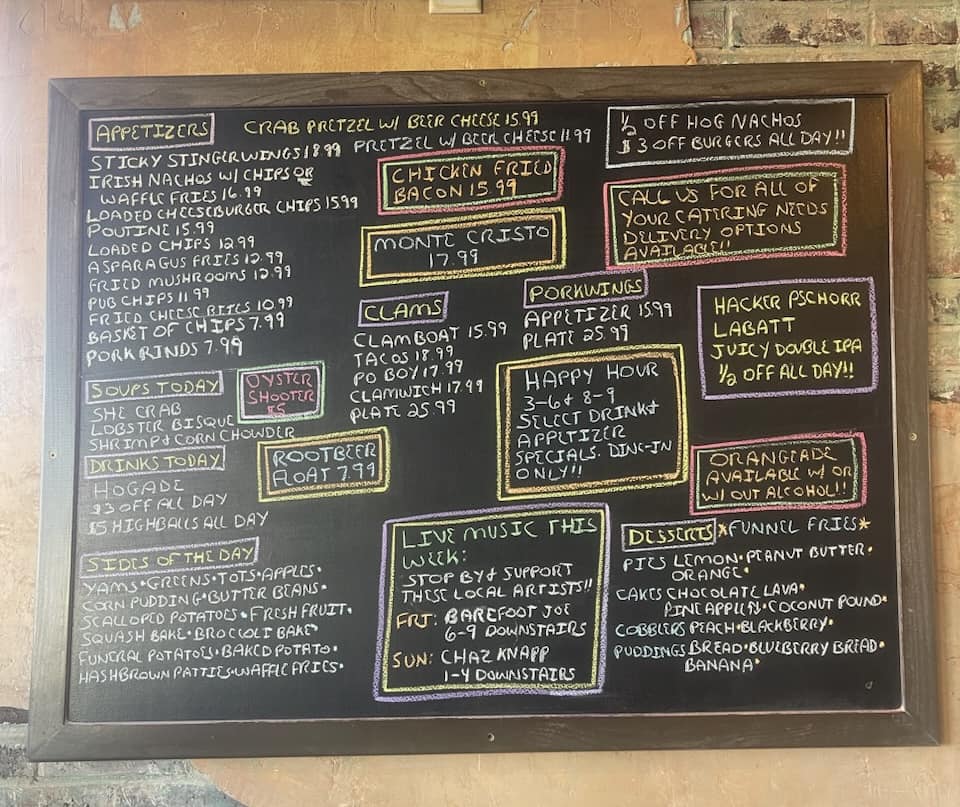 APPETIZERS
CRAB PRETZEL W/ BEER CHEESE 15.99
PRETZEL W/ BEER CHEESE 11.99
STICKY STINGER WINGS 18.99
IRISH NACHOS W/ CHIPS OR
WAFFLE FRIES 16.99
LOADED CHEESEBURGER CHIPS 15.99
POUTINE 15.99
LOADED CHIPS 12.99
ASPARAGUS FRIES 12.99
FRIED MUSHROOMS 12.99
PUB CHIPS 11.99
FRIED CHEESE BITES 10.99
BASKET OF CHIPS 7.99
PORK RINDS 7.99
SOUPS TODAY
SHE CRAB
LOBSTER BISQUE
SHRIMP & CORN CHOWDER
OYSTER
SHOOTER
$5
DRINKS TODAY
HOGADE
$3 OFF ALL DAY
$5 HIGHBALLS ALL DAY
ROOTBEER
FLOAT 7.99
SIDES OF THE DAY
YAMS • GREENS • TOTS • APPLES •
CORN PUDDING • BUTTER BEANS •
SCALLOPED POTATOES • FRESH FRUIT •
SQUASH BAKE • BROCCOLI BAKE •
FUNERAL POTATOES • BAKED POTATO •
HASHBROWN PATTIES • WAFFLE FRIES •
CHICKEN FRIED
BACON 15.99
MONTE CRISTO
17.99
CLAMS
CLAMBOAT 15.99
TACOS 18.99
PO BOY 17.99
CLAMWICH 17.99
PLATE 25.99
PORKWINGS
APPETIZER 15.99
PLATE 25.99
HAPPY HOUR
3-6 & 8-9
SELECT DRINK &
APPETIZER
SPECIALS. DINE-IN
ONLY!!
LIVE MUSIC THIS
WEEK:
STOP BY & SUPPORT
THESE LOCAL ARTISTS!!
FRI: BAREFOOT JOE
6-9 DOWNSTAIRS
SUN: CHAZ KNAPP
1-4 DOWNSTAIRS
1/2 OFF HOG NACHOS
$3 OFF BURGERS ALL DAY!!
CALL US FOR ALL OF
YOUR CATERING NEEDS
DELIVERY OPTIONS
AVAILABLE!!
HACKER PSCHORR
LABATT
JUICY DOUBLE IPA
1/2 OFF ALL DAY!!
ORANGEADE
AVAILABLE W/ OR
W/OUT ALCOHOL!!
DESSERTS *FUNNEL FRIES*
PIES LEMON • PEANUT BUTTER •
ORANGE •
CAKES CHOCOLATE LAVA •
PINEAPPLE • COCONUT POUND •
COBBLERS PEACH • BLACKBERRY •
PUDDINGS BREAD • BLUEBERRY BREAD •
BANANA •